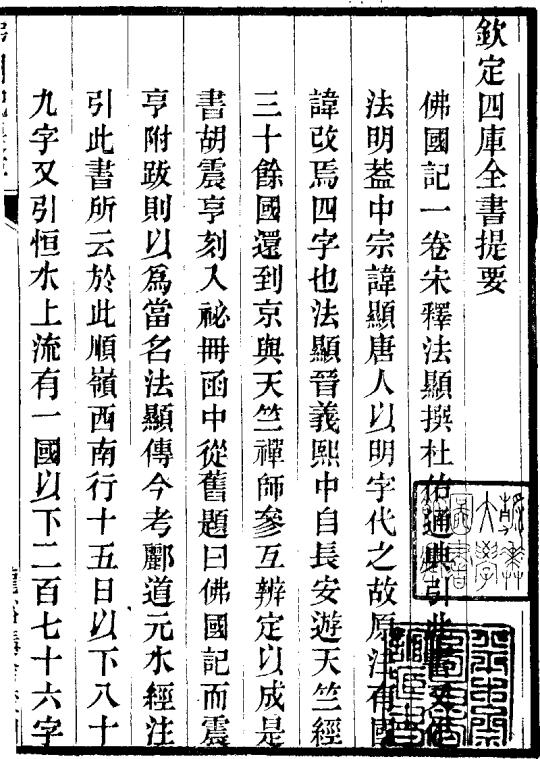 欽定四庫全書提要
佛國記一卷宋釋法顯撰杜佑通典引此書又作
法明蓋中宗諱顯唐人以明字代之故原注有國
諱改焉四字也法顯晉義熙中自長安遊天竺經
三十餘國還到京與天竺禪師參互辨定以成是
書胡震亨刻入祕冊函中從舊題曰佛國記而震
亨附跋則以爲當名法顯傳今考酈道元水經注
引此書所云於此順嶺西南行十五日以下八十
九字又引恒水上流有一國以下二百七十六字